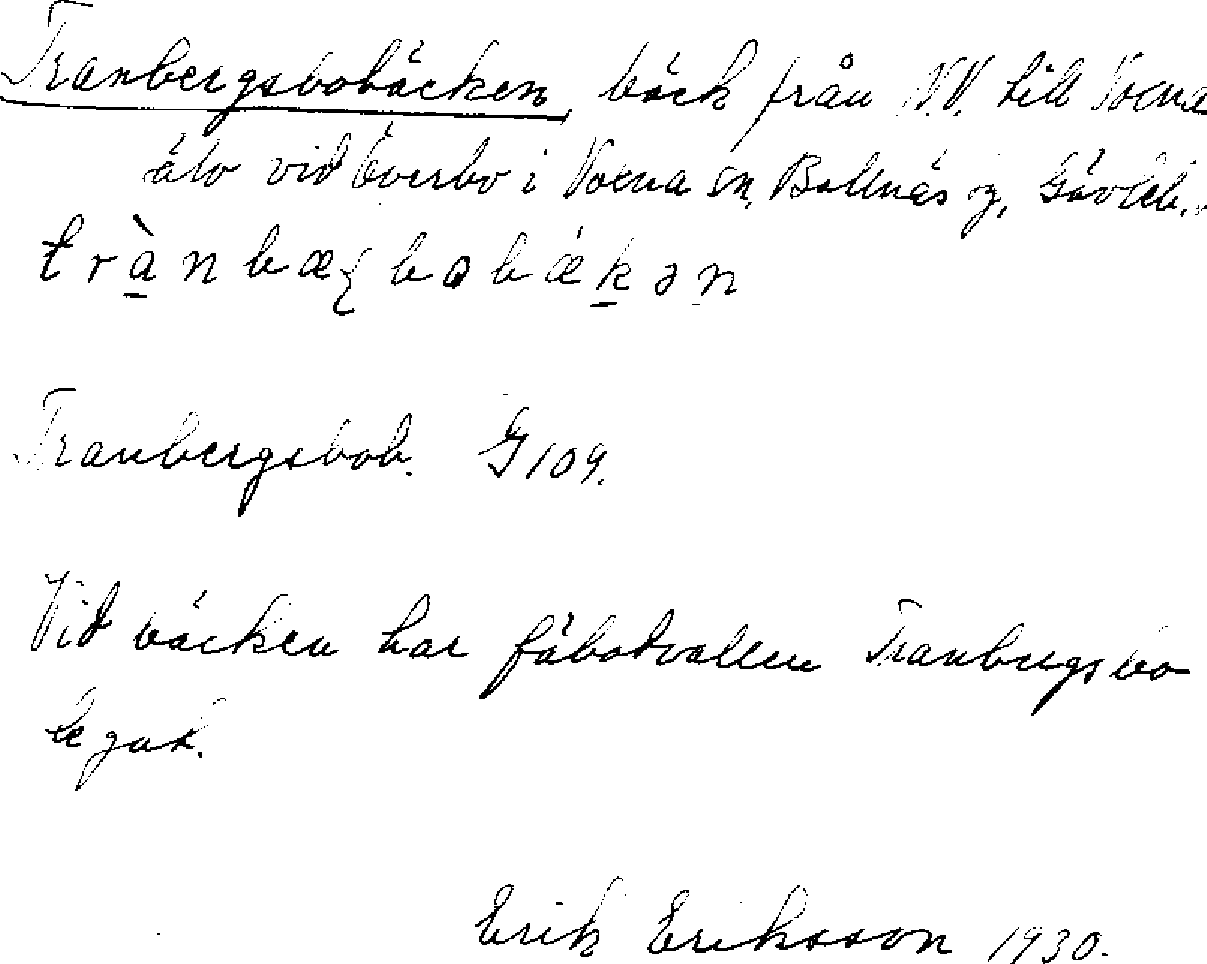 Tranbergsbobäcken, bäck från N.V. till Voxna
älv vid Överbo i Voxna sn, Bollnäs tg, Gävleb.
trànbæɀbobækən
Tranbergsbob. G 109.
Vid bäcken har fäbodvallen Tranbergsbo
legat.
Erik Eriksson 1930.